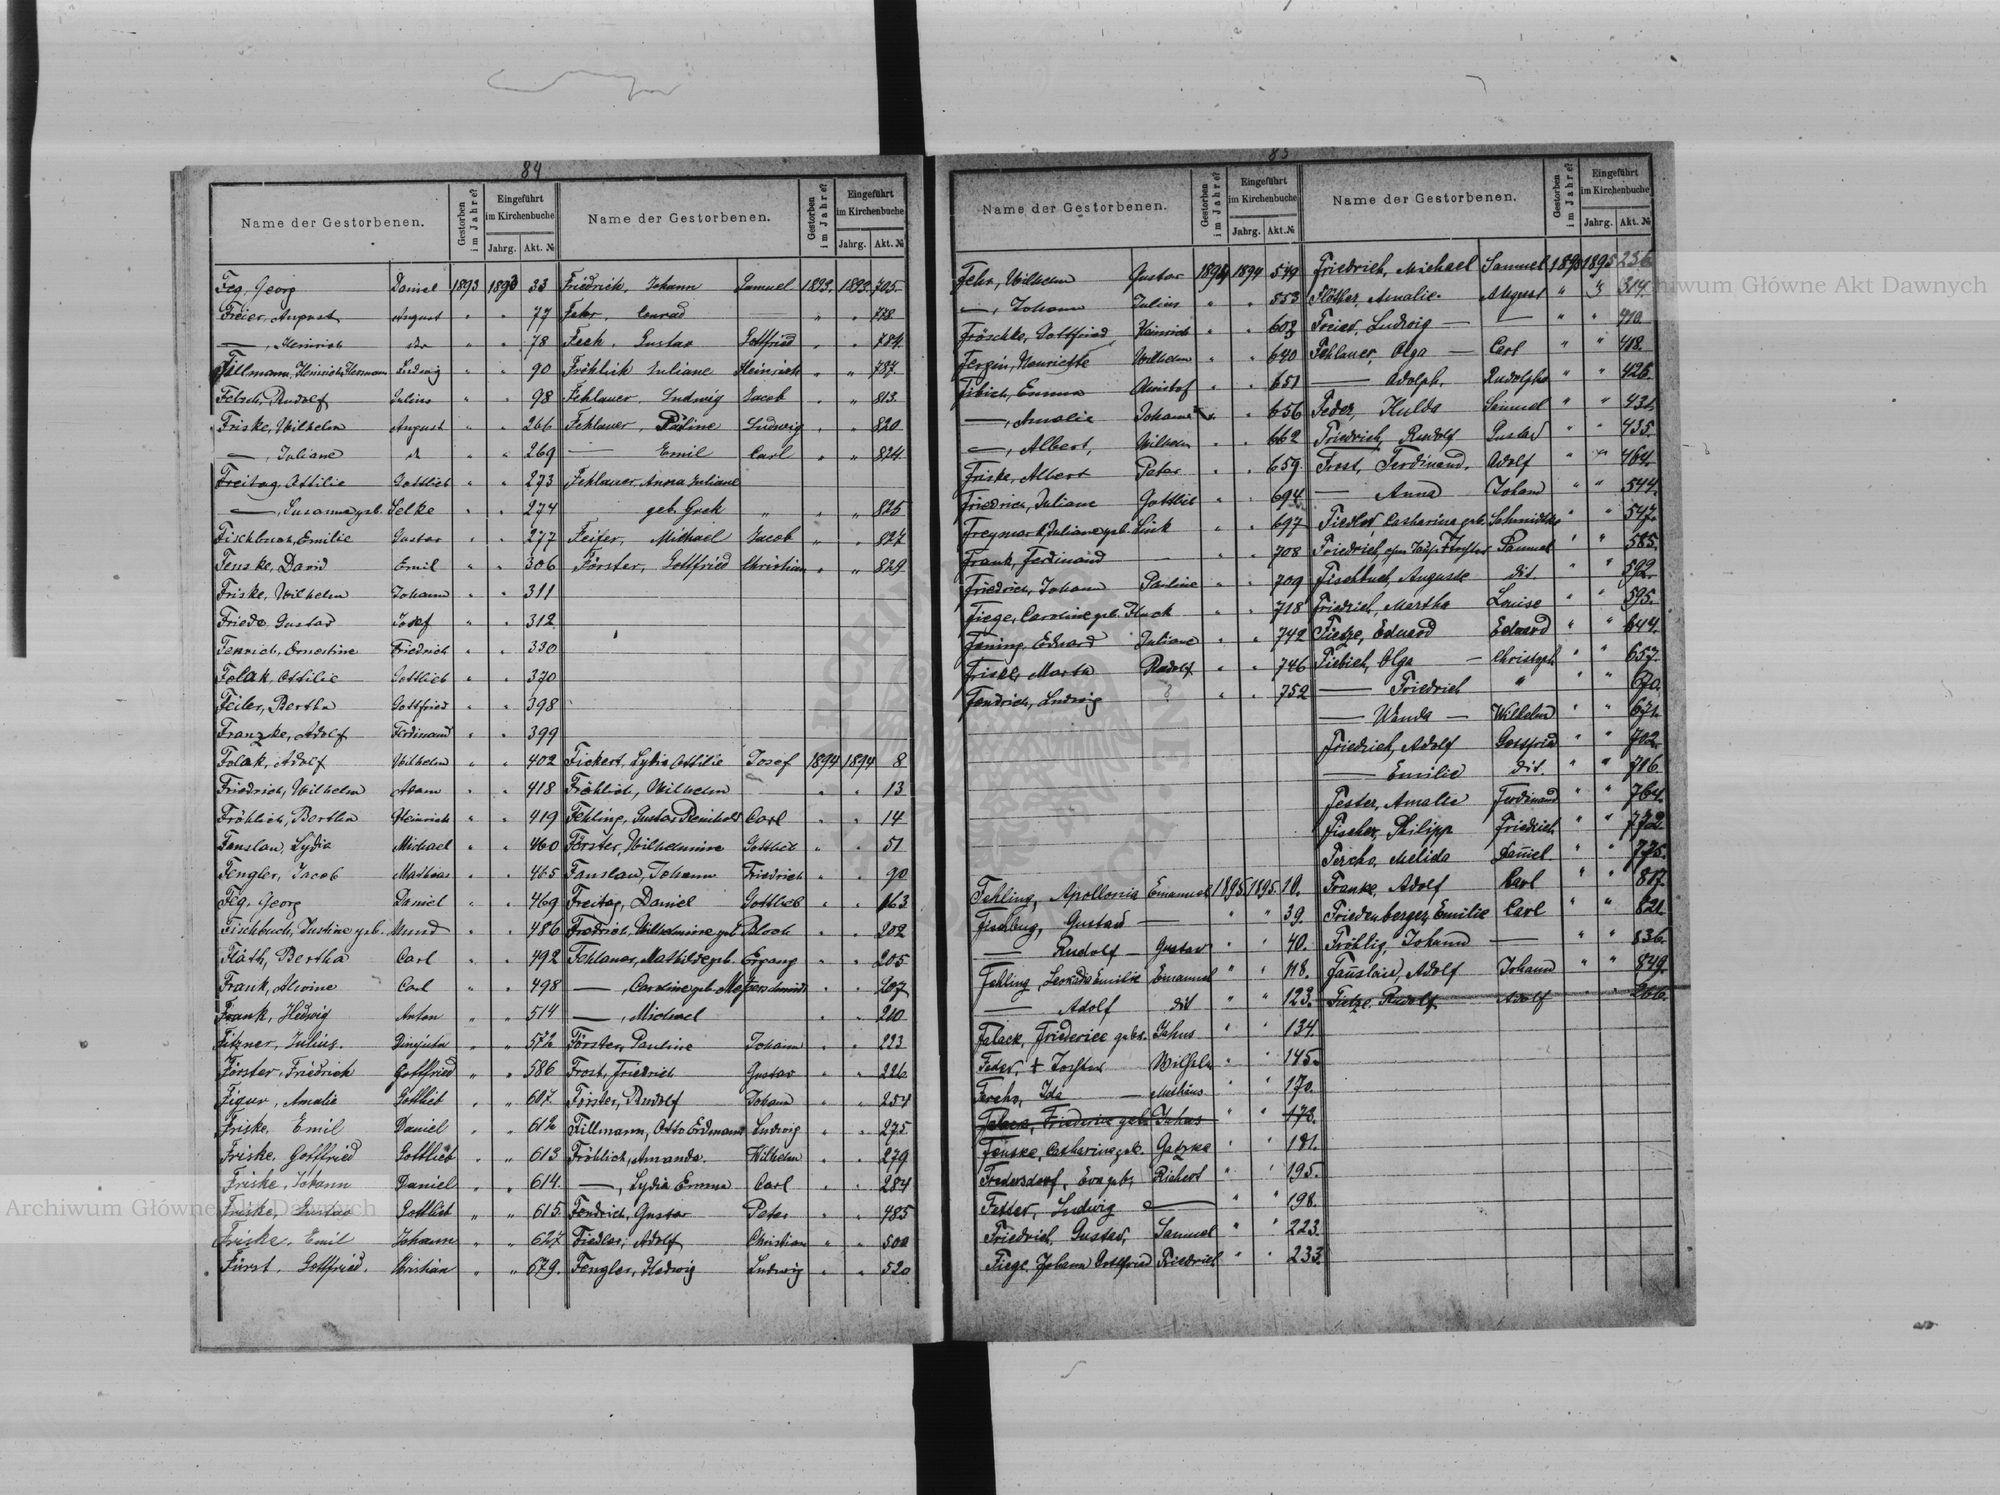 84
Name der Gestorbenen. Gestorben im Jahre? Eingeführt im Kirchenbuche Jahrg. Akt. №
Feg, Georg Daniel 1893 1893 33
Freier, August August " " 77
—, Heinrich dto " " 78
Fillmann, Heinrich Hermann Ludwig " " 90
Fetsch, Rudolf Julius " " 98
Friske, Wilhelm August " " 266
—, Juliane " " 269
Freitag, Ottilie Gottlieb " " 273
—, Susanna geb. Selke " " 274
Fischbuch, Emilie Gustav " " 277
Fenske, David Emil " " 306
Friske, Wilhelm Johann " " 311
Friede, Gustav Josef " " 312
Fenrich, Ernestine Friedrich " " 330
Folak, Ottilie Gottlieb " " 370
Feiler, Bertha Gottfried " " 398
Franzke, Adolf Ferdinand " " 399
Folak, Adolf Wilhelm " " 402
Friedrich, Wilhelm Adam " " 418
Fröhlich, Bertha Heinrich " " 419
Fanslau, Lydia Michael " " 460
Fengler, Jacob Mathias " " 465
Feg, Georg Daniel " " 469
Fischbuch, Justine geb. Mund " " 486
Fläth, Bertha Carl " " 492
Frank, Alwine Carl " " 498
Frank, Hedwig Anton " " 514
Fitzner, Julius. " " 572
Förster, Friedrich Gottfried " " 586
Figur, Amalie Gottlieb " " 607.
Friske, Emil Daniel " " 612
Friske, Gottfried Gottlieb " " 613
Friske, Johann Daniel " " 614.
Friske, Gustav Gottlieb " " 615
Friske, Emil Johann " " 627
Fürst, Gottfried. Christian " " 679.
Name der Gestorbenen. Gestorben im Jahre? Eingeführt im Kirchenbuche Jahrg. Akt. №
Friedrich, Johann Samuel 1893. 1893. 705.
Fehr, Conrad — " " 778
Fech, Gustav Gottfried " " 784.
Fröhlich Juliane Heinrich " " 787.
Fehlauer, Ludwig Jacob " " 813.
Fehlauer, Pauline Ludwig " " 820
— Emil Carl " " 824.
Fehlauer, Anna Juliane
geb. Guck " " " 825
Feifer, Michael Jacob " " 827
Förster, Gottfried Christian " " 829
Fickert, Lydia Ottilie Josef 1894 1894 8
Fröhlich, Wilhelm - " " 13
Fehling, Gustav Reinhold Carl " " 14
Förster, Wilhelmine Gottlieb " " 51
Fanslau, Johann Friedrich " " 90
Freitag, Daniel Gottlieb " " 163
Friedrich, Wilhelmine geb. Bloch " " 202
Fehlauer, Mathilde geb. Ergang " " 205
—, Caroline geb. Messerschmidt " 207
—, Michael " " 210
Förster, Pauline Johann " " 223
Frost, Friedrich Gustav " " 226
Förster, Rudolf Johann " " 254
Fillmann, Otto Erdmann Ludwig " " 275
Fröhlich, Amanda. Wilhelm " " 279
—, Lydia Emma Carl " " 284
Fendrich, Gustav Peter " " 485
Fiedler, Adolf Christian " " 500
Fengler, Hedwig Ludwig " " 520
85
Name der Gestorbenen. Gestorben im Jahre? Eingeführt im Kirchenbuche Jahrg. Akt. №
Fehr, Wilhelm Gustav 1894 1894 549
—, Johann Julius " " 553
Fröschke, Gottfried Heinrich " " 603
Ferzin, Henriette Wilhelm " " 640
Fibich, Emma Christof " " 651
—, Amalie Johann " " 656
—, Albert, Wilhelm " " 662
Friske, Albert Peter " " 659.
Friedrich, Juliane Gottlieb " " 694
Freymark, Juliane geb. Link " " 697
Frank, Ferdinand — " " 708
Friedrich, Johann Pauline " " 709
Fiege, Caroline geb. Fluck " " 718
Fening, Eduard Juliane " " 742
Friske, Marta Rudolf " " 746
Fendrich, Ludwig ? " " 752
Fehling, Apollonia Emanuel 1895 1895. 10.
Gustav — " " 39.
— Rudolf — Gustav " " 40.
Fehling, Leokadia Emilie Emanuel " " 118.
— Adolf dit " " 123.
Falack, Friederice gebr. Jahns " " 134.
Feder, † Tochter Wilhelm " " 145.
Fercho, Ida — Mathias " " 170.
Falack, Friederice geb. Jahns " " 173.
Fenske, Catharina geb. Gatzke " " 181.
Fredersdorf, Eva geb. Richert " " 195.
Fetter, Ludwig — " " 198.
Friedrich, Gustav, Samuel " " 223.
Fiege, Johann Gottfried Friedrich " " 233.
Name der Gestorbenen. Gestorben im Jahre? Eingeführt im Kirchenbuche Jahrg. Akt. №
Friedrich, Michael Samuel 1895 1895 236.
Flötter, Amalie. August " " 314.
Freier, Ludwig — — " " 410.
Fehlauer, Olga — Carl " " 418.
— Adolph. Rudolph " " 426.
Feder, Hulda Samuel " " 431.
Friedrich, Rudolf Gustav " " 435.
Frost, Ferdinand. Adolf " " 464.
— Anna Johann " " 544.
Fiedler Catharina geb. Schmidtke " " 547.
Friedrich, Tochter Samuel " " 585.
Fischbuch, Auguste dit. " " 592.
Friedrich, Martha Louise " " 595.
Tietze, Eduard Eduard " " 644.
Fiebich, Olga — Christoph " " 657.
— Friedrich " " " 670.
— Wanda — Wilhelm " " 671.
Friedrich, Adolf Gottfried " " 702.
— Emilie dit. " " 716.
Fester, Amalie Ferdinand " " 764.
Fischer, Philipp Friedrich " " 772.
Fercho, Melida Daniel " " 775.
Franke, Adolf Karl " " 817.
Friedenberger, Emilie Carl " " 821.
Fröhlig, Johann — " " 836.
Fanslau, Adolf Johann " " 849.
Tietze, Rudolf Adolf " " 266.
Archiwum Główne Akt Dawnych
Archiwum Główne Akt Dawnych